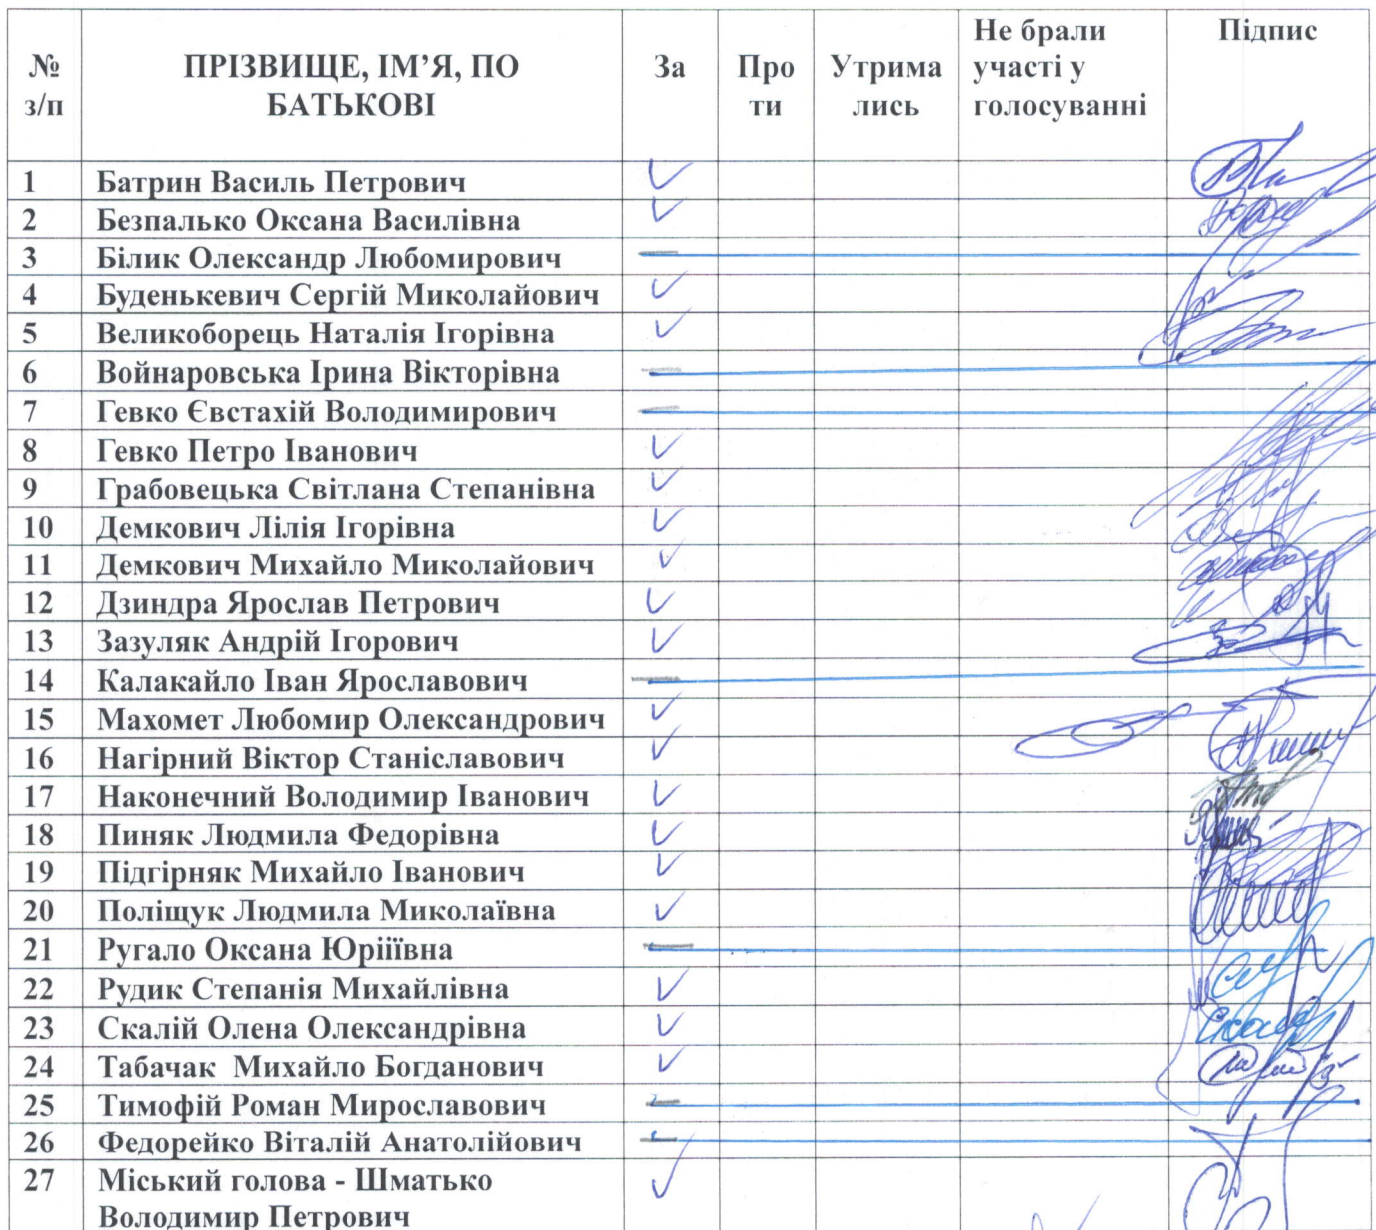 № з/п ПРІЗВИЩЕ, ІМ’Я, ПО БАТЬКОВІ За Про ти Утрима лись Не брали участі у голосуванні Підпис
1 Батрин Василь Петрович ✓
2 Безпалько Оксана Василівна ✓
3 Білик Олександр Любомирович —
4 Буденькевич Сергій Миколайович ✓
5 Великоборець Наталія Ігорівна ✓
6 Войнаровська Ірина Вікторівна —
7 Гевко Євстахій Володимирович —
8 Гевко Петро Іванович ✓
9 Грабовецька Світлана Степанівна ✓
10 Демкович Лілія Ігорівна ✓
11 Демкович Михайло Миколайович ✓
12 Дзиндра Ярослав Петрович ✓
13 Зазуляк Андрій Ігорович ✓
14 Калакайло Іван Ярославович —
15 Махомет Любомир Олександрович ✓
16 Нагірний Віктор Станіславович ✓
17 Наконечний Володимир Іванович ✓
18 Пиняк Людмила Федорівна ✓
19 Підгірняк Михайло Іванович ✓
20 Поліщук Людмила Миколаївна ✓
21 Ругало Оксана Юріїївна —
22 Рудик Степанія Михайлівна ✓
23 Скалій Олена Олександрівна ✓
24 Табачак Михайло Богданович ✓
25 Тимофій Роман Мирославович —
26 Федорейко Віталій Анатолійович —
27 Міський голова - Шматько ✓
Володимир Петрович